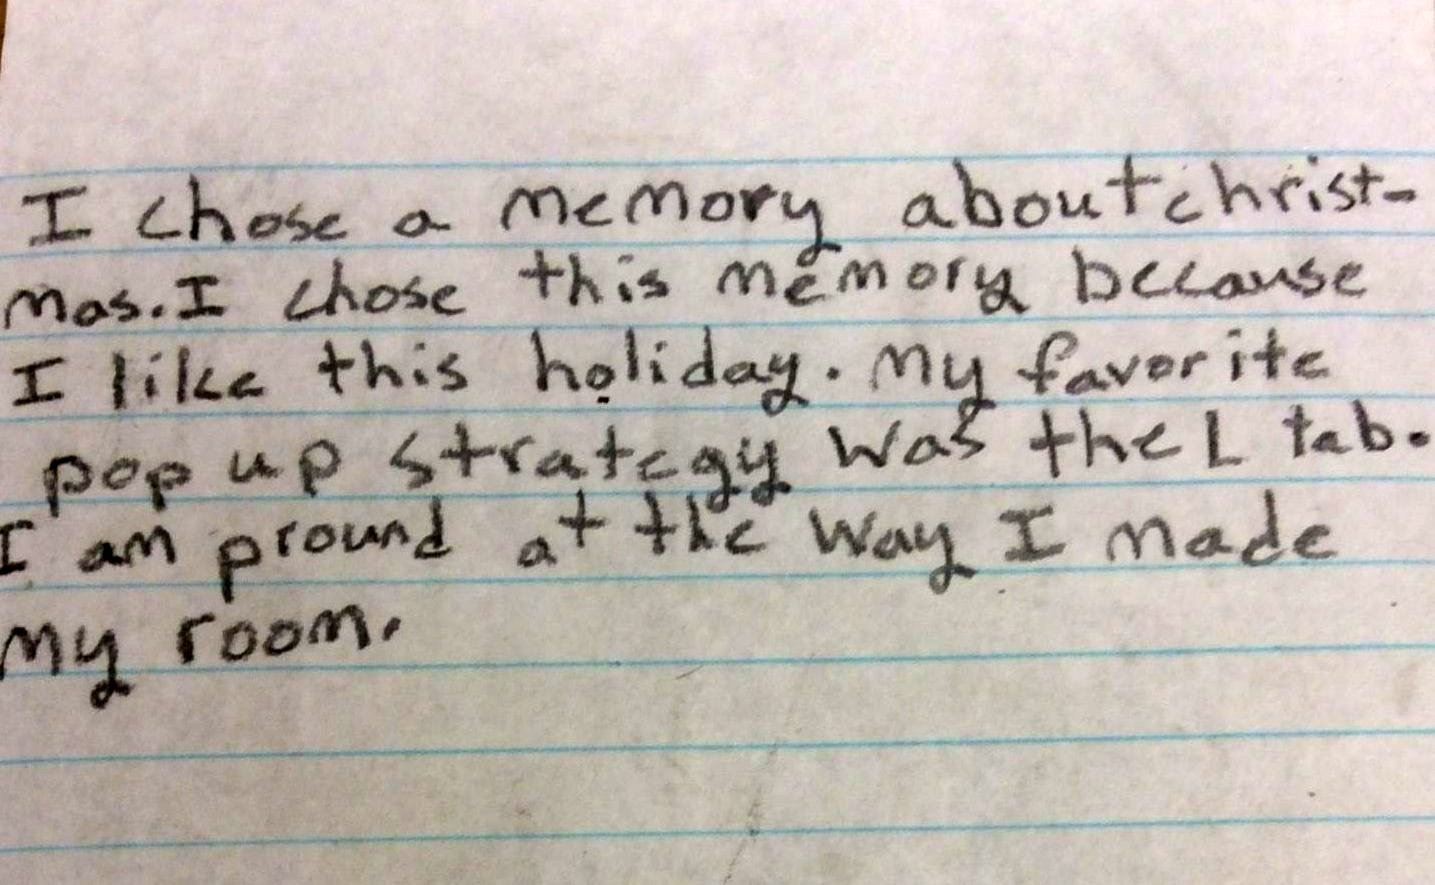 I chose a memory about christ-
mas. I chose this memory because
I like this holiday. My favorite
pop up strategy was the L tab.
I am pround at the way I made
my room.